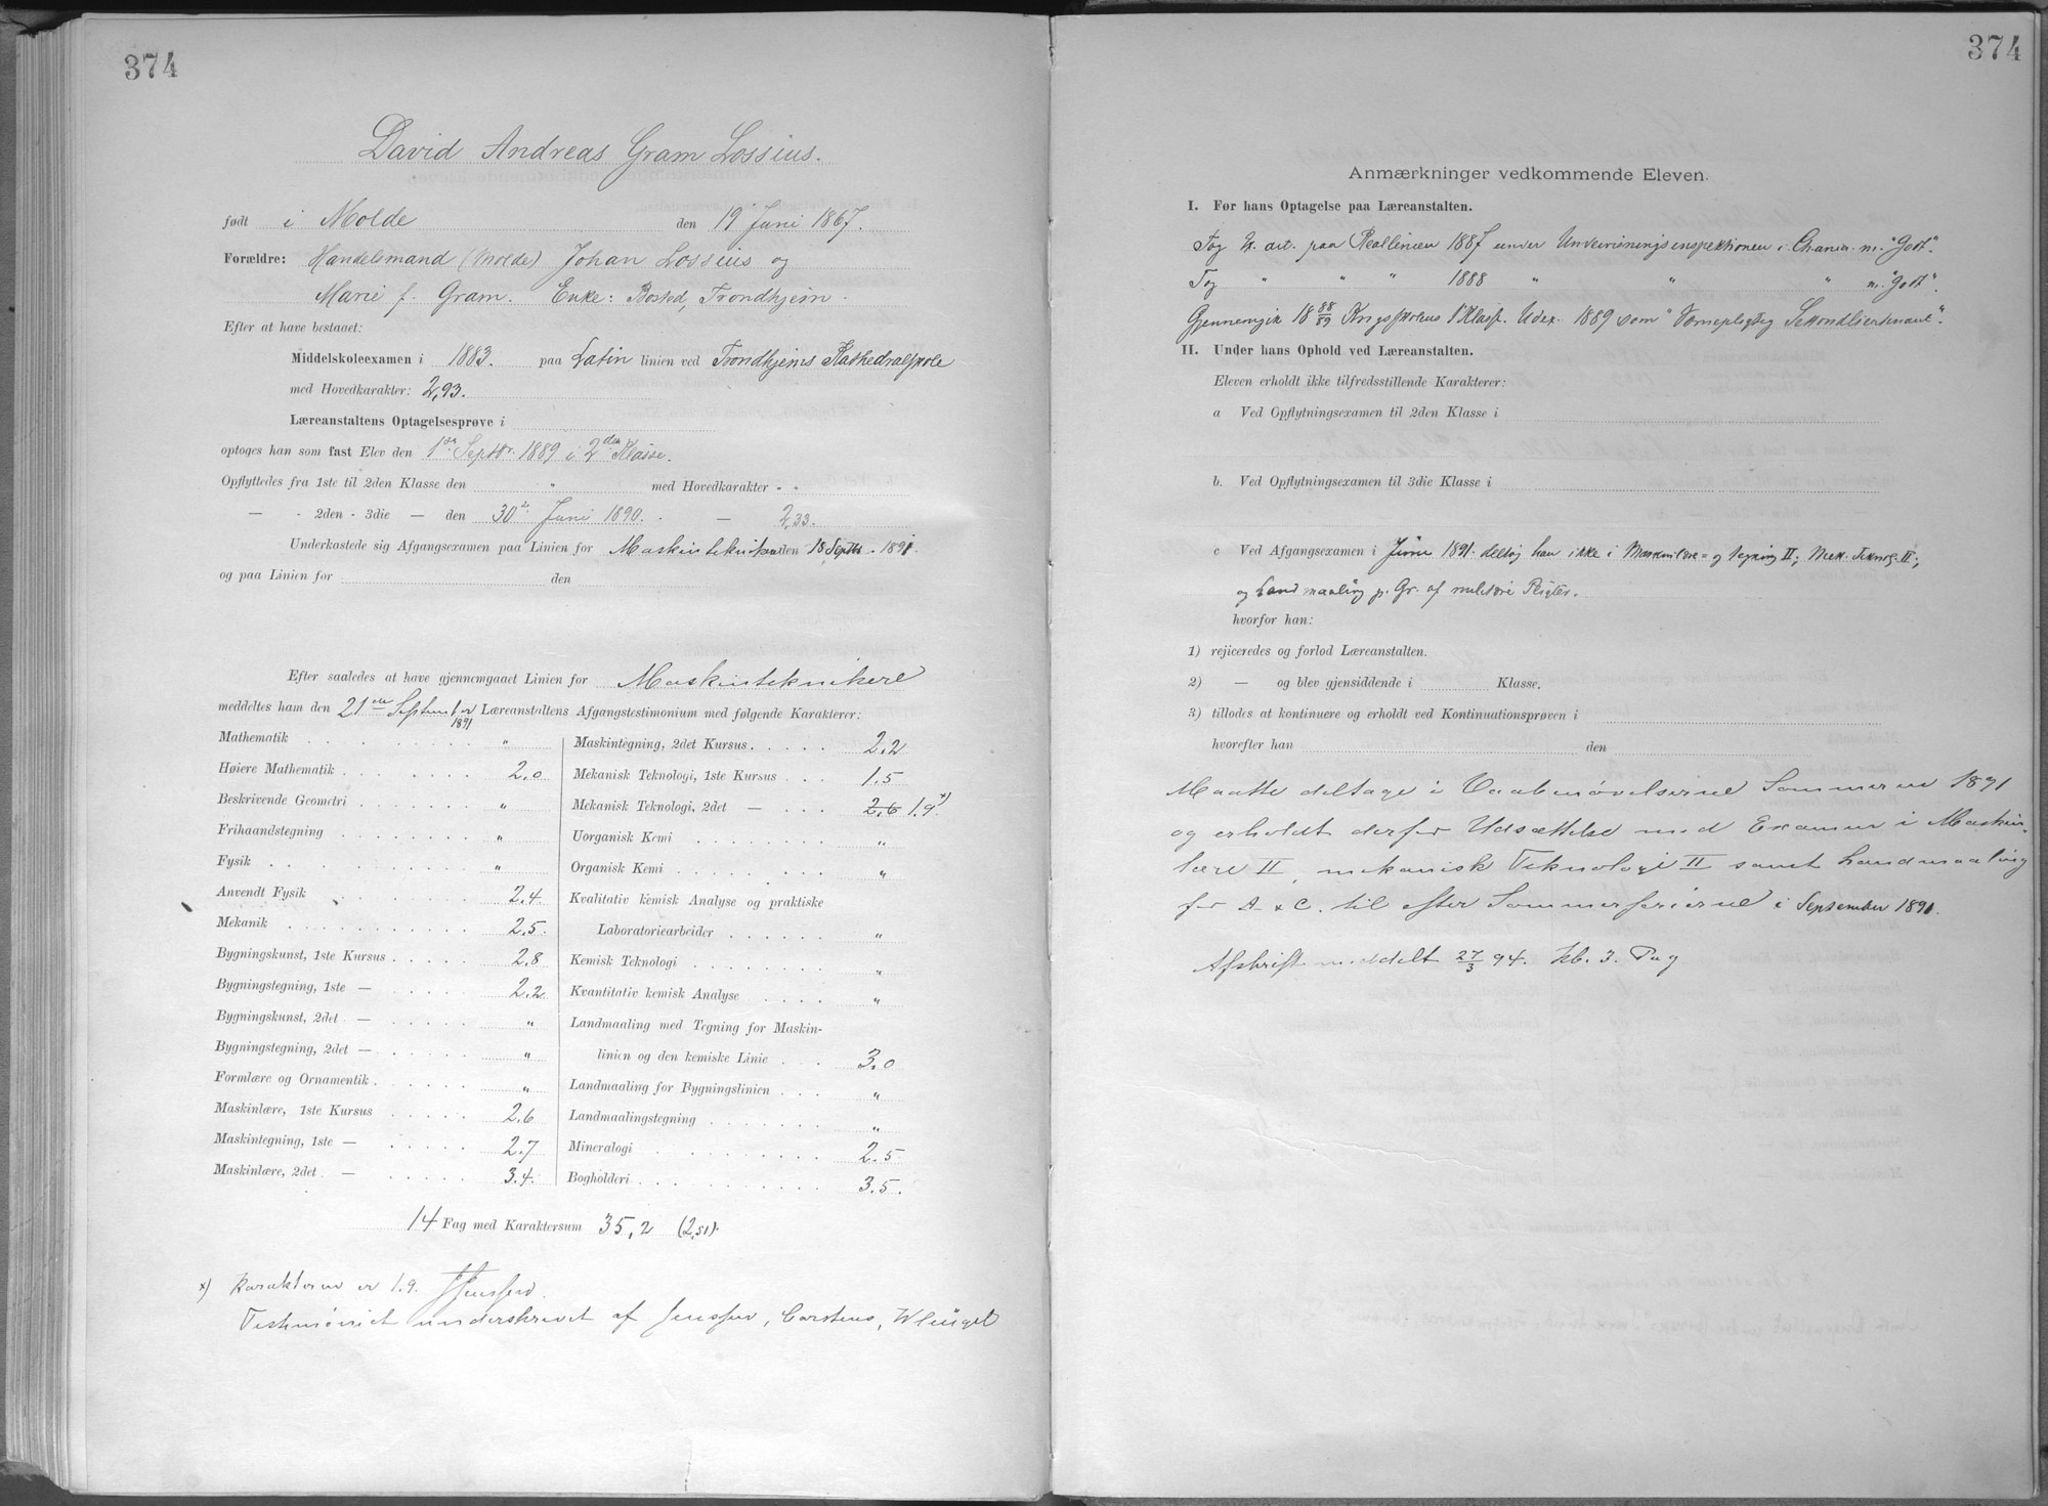 374
David Andreas Gram Lossius.
født i Molde den 19 Juni 1867.
Forældre: Handelsmand (Molde) Johan Lossius og
Marie f. Gram. Enke: Bosted, Trondhjem.
Efter at have bestaaet:
Middelskoleexamen i 1883. paa Latin linien ved Trondhjems Kathedralskole
med Hovedkarakter: 2,93.
Læreanstaltens Optagelsesprøve i
optoges han som fast Elev den 1ste Septbr. 1889 i 2den Klasse.
Opflyttedes fra 1ste til 2den Klasse den " med Hovedkarakter " "
— - 2den - 3die — den 30te Juni 1890. - — 2,33.
Underkastede sig Afgangsexamen paa Linien for Maskinteknikere den 18 Septbr. 1891.
og paa Linien for den
Efter saaledes at have gjennemgaaet Linien for Maskinteknikere
meddeltes ham den 21de September 1891 Læreanstaltens Afgangstestimonium med følgende Karakterer:
Mathematik "
Høiere Mathematik 2.0
Beskrivende Geometri "
Frihaandstegning "
Fysik "
Anvendt Fysik 2.4
Mekanik 2.5
Bygningskunst, 1ste Kursus 2.8
Bygningstegning, 1ste — 2.2
Bygningskunst, 2det — "
Bygningstegning, 2det — "
Formlære og Ornamentik "
Maskinlære, 1ste Kursus 2.6
Maskintegning, 1ste — 2.7
Maskinlære, 2det — 3.4
Maskintegning, 2det Kursus 2.2
Mekanisk Teknologi, 1ste Kursus 1.5
Mekanisk Teknologi, 2det — 2.6 1.9 x)
Uorganisk Kemi "
Organisk Kemi "
Kvalitativ kemisk Analyse og praktiske
Laboratoriearbeider "
Kemisk Teknologi "
Kvantitativ kemisk Analyse "
Landmaaling med Tegning for Maskin-
linien og den kemiske Linie 3.0
Landmaaling for Bygningslinien "
Landmaalingstegning "
Mineralogi 2.5
Bogholderi 3.5.
14 Fag med Karaktersum 35,2 (2,51).
x) Karakteren er 1.9.
Testimoniet underskrevet af Jenssen, Carstens,
374
Anmærkninger vedkommende Eleven.
I. Før hans Optagelse paa Læreanstalten.
Tog Ex. art. paa Reallinien 1887 under Undervisningsinspektionen i Chania m. "Godt".
Tog " " " 1888 " " " m. "Godt".
Gjennemgik 18 88/89 Krigsskolens 1ste Klasse. Udex. 1889 som "Værnepligtig Sekondlieutenant".
II. Under hans Ophold ved Læreanstalten.
Eleven erholdt ikke tilfredsstillende Karakterer:
a Ved Opflytningsexamen til 2den Klasse i
b. Ved Opflytningsexamen til 3die Klasse i
c Ved Afgangsexamen i Juni 1891 deltog han ikke i Maskinlære- og tegning II; Mek. Teknog. II;
og Landmaaling p. Gr. af militære Pligter.
hvorfor han:
1) rejiceredes og forlod Læreanstalten.
2) — og blev gjensiddende i Klasse.
3) tillodes at kontinuere og erholdt ved Kontinuationsprøven i
hvorefter han den
Maatte deltage i Vaabenøvelserne Sommeren 1891
og erholdt derfor Udsættelse med Examen i Maskin-
lære II, mekanisk Teknologi II samt Landmaaling
for A & C. til efter Sommerferierne i September 1891.
Afskrift meddelt 27/3 94. kb. 3.